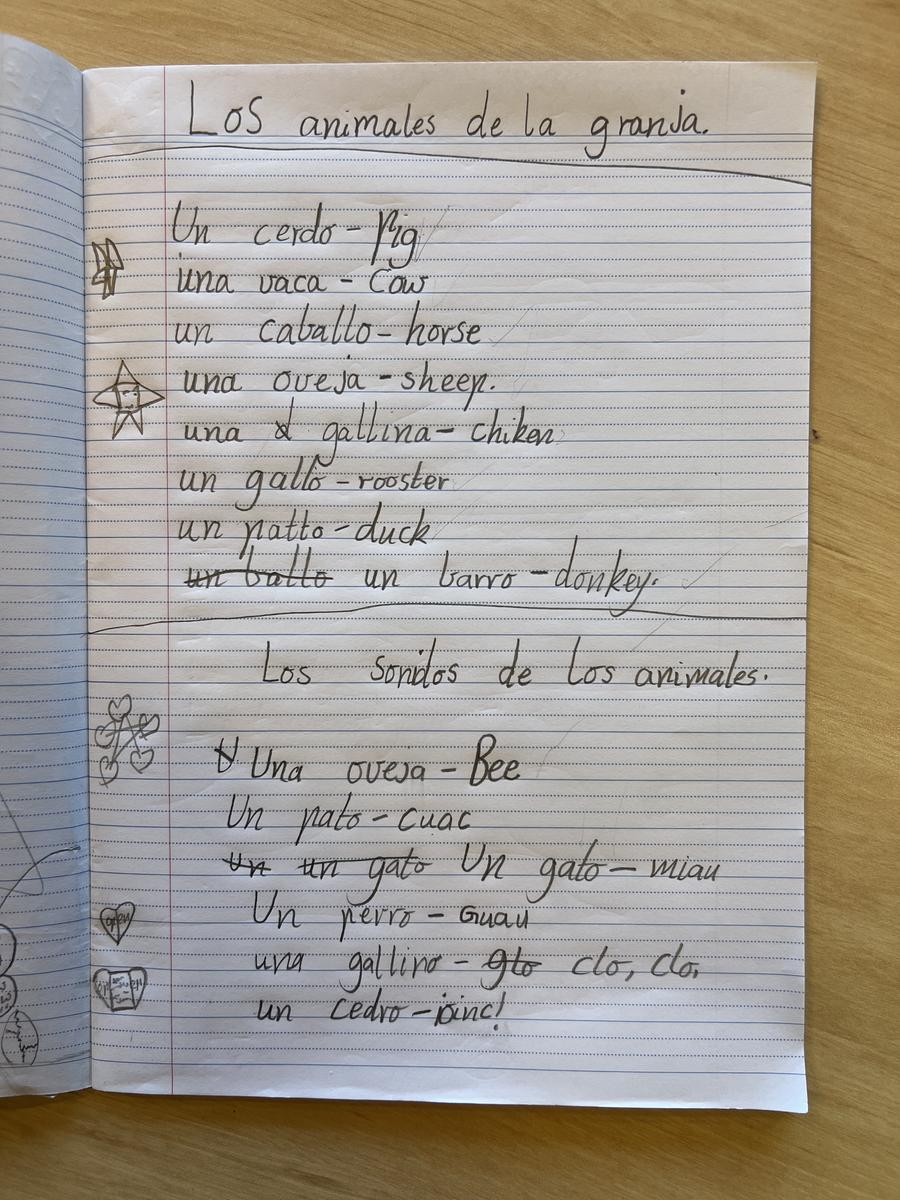 Los animales de la granja.
Un cerdo - Pig
una vaca - Cow
un caballo - horse
una oveja - sheep.
una gallina - chiken
un gallo - rooster
un patto - duck
un ballo un barro - donkey.
Los sonidos de los animales.
Una oveja - Bee
Un pato - cuac
Un un gato Un gato - miau
Un perro - Guau
una gallino - glo clo, clo,
un cedro - ¡oinc!
open